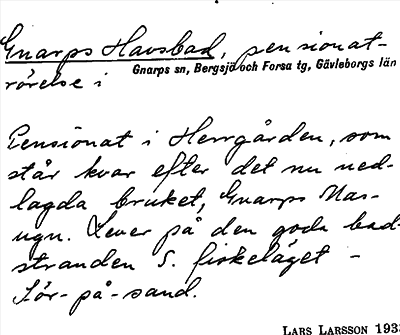 Gnarps Havsbad, pensionat-
Gnarps sn, Bergsjö och Forsa tg, Gävleborgs län
rörelse i
Pensionat i Herrgården, som
står kvar efter det nu ned-
lagda bruket, Gnarps Mas-
ugn. Lever på den goda bad-
stranden S. fiskeläget -
Sör-på-sand.
LARS LARSSON 193